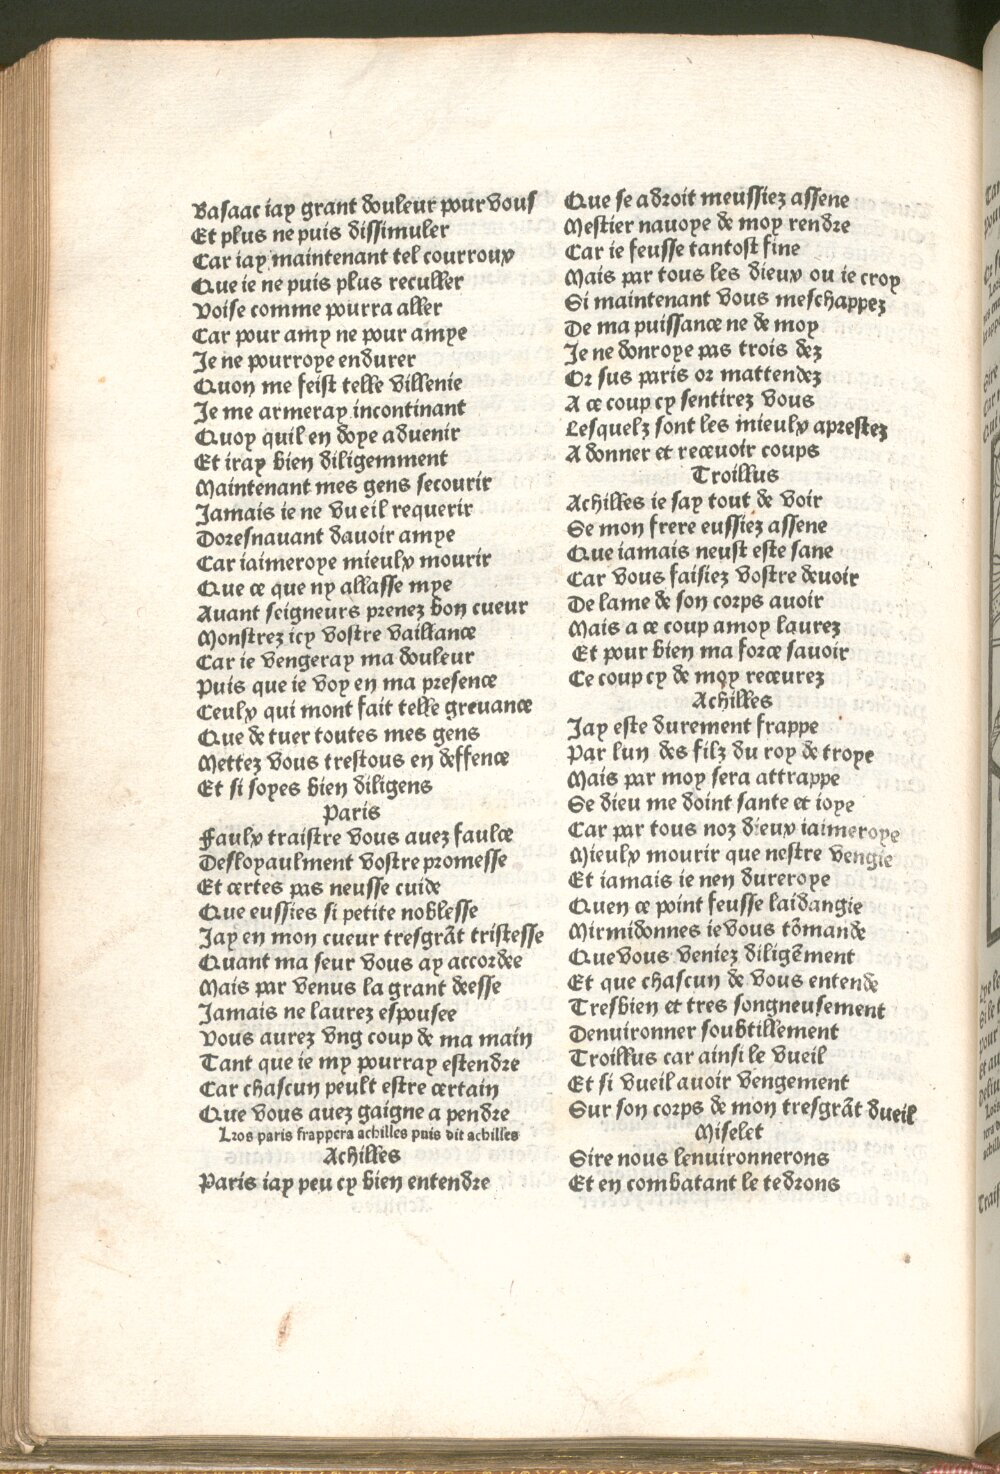 Basaac iay grant douleur pour vous
Et plus ne puis dissimuler
Car iay maintenant tel courroux
Que ie ne puis plus reculler
Voise comme pourra aller
Car pour amy ne pour amye
Je ne pourroye endurer
Quon me feist telle villenie
Je me armeray incontinant
Quoy quil en doye aduenir
Et iray bien diligemment
Maintenant mes gens secourir
Jamais ie ne vueil requerir
Doresnauant dauoir amye
Car iaimeroye mieulx mourir
Que ce que ny allasse mye
Auant seigneurs prenez bon cueur
Monstrez icy vostre vaillance
Car ie vengeray ma douleur
Puis que ie voy en ma presence
Ceulx qui mont fait telle greuance
Que de tuer toutes mes gens
Mettez vous trestous en deffence
Et si soyes bien diligens
Paris
Faulx traistre vous auez faulce
Desloyaulment vostre promesse
Et certes pas neusse cuide
Que eussies si petite noblesse
Jay en mon cueur tresgrãt tristesse
Quant ma seur vous ay accordee
Mais par venus la grant deesse
Jamais ne laurez espousee
Vous aurez vng coup de ma main
Tant que ie my pourray estendre
Car chascun peult estre certain
Que vous auez gaigne a pendre
Lros paris frappera achilles puis dit achilles
Achilles
Paris iay peu cy bien entendre
Que se adroit meussiez assene
Mestier nauoye de moy rendre
Car ie feusse tantost fine
Mais par tous les dieux ou ie croy
Si maintenant vous meschappez
De ma puissance ne de moy
Je ne donroye pas trois dez
Or sus paris or mattendez
A ce coup cy sentirez vous
Lesquelz sont les mieulx aprestez
A donner et receuoir coups
Troillus
Achilles ie say tout de voir
Se mon frere eussiez assene
Que iamais neust este sane
Car vous faisiez vostre deuoir
De lame de son corps auoir
Mais a ce coup amoy laurez
Et pour bien ma force sauoir
Ce coup cy de moy receurez
Achilles
Jay este durement frappe
Par lun des filz du roy de troye
Mais par moy sera attrappe
Se dieu me doint sante et ioye
Car par tous noz dieux iaimeroye
Mieulx mourir que nestre vengie
Et iamais ie nen dureroye
Quen ce point feusse laidangie
Mirmidonnes ie vous cõmande
Que vous veniez diligẽment
Et que chascun de vous entende
Tresbien et tres songneusement
Denuironner soubtillement
Troillus car ainsi le vueil
Et si vueil auoir vengement
Sur son corps de mon tresgrãt dueil
Miselet
Sire nous lenuironnerons
Et en combatant le tẽdrons